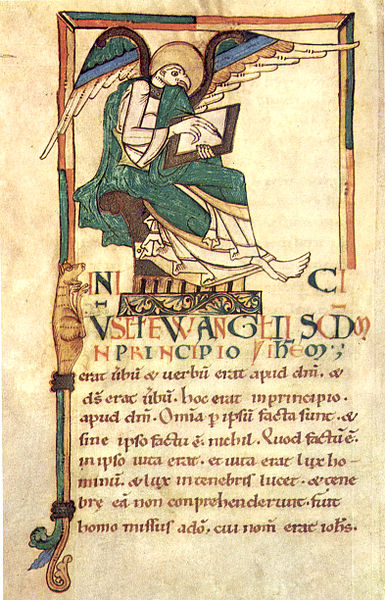 INI CI
EWANGHELII
N PRINCIPIO
erat ūbū & verbum erat apud dm̄. &
ds̄ erat ūbū. hoc erat inprincipio.
apud dm̄. Omīa p ipsū facta sunt. &
sine ipso factū ē. nehil. Quod factū ē.
in ipso uita erat. et uita erat lux ho
minū. & lux intenebris lucet. & tene
brę eā non conprehenderunt. fuit
homo missus adō. cui nom̄ erat ioh̄s.